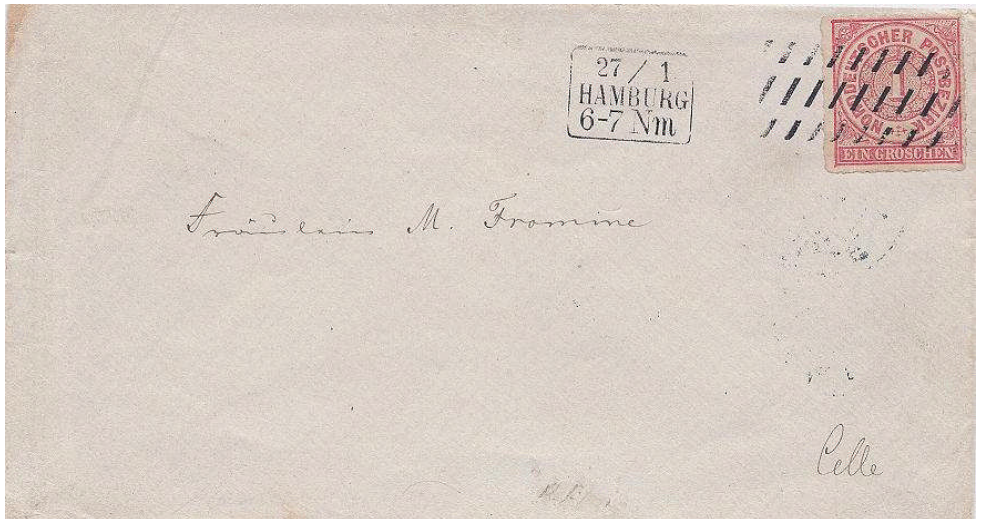 27 / 1
HAMBURG
6-7 Nm
NORDDEUTSCHER POSTBEZIRK
1
EIN GROSCHEN
Fräulein M. Fromme
Celle